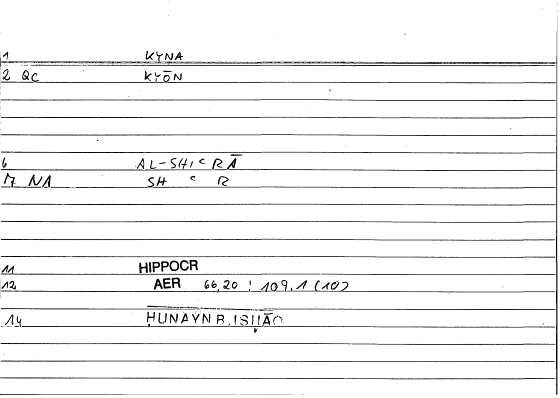 1 KYNA
2 QC KYŌN
6 AL-SHIᶜRĀ
7 NA SH ᶜ R
11 HIPPOCR
12 AER 66,20 ! 109,1 (10)
14 ḤUNAYN B. ISḤĀQ